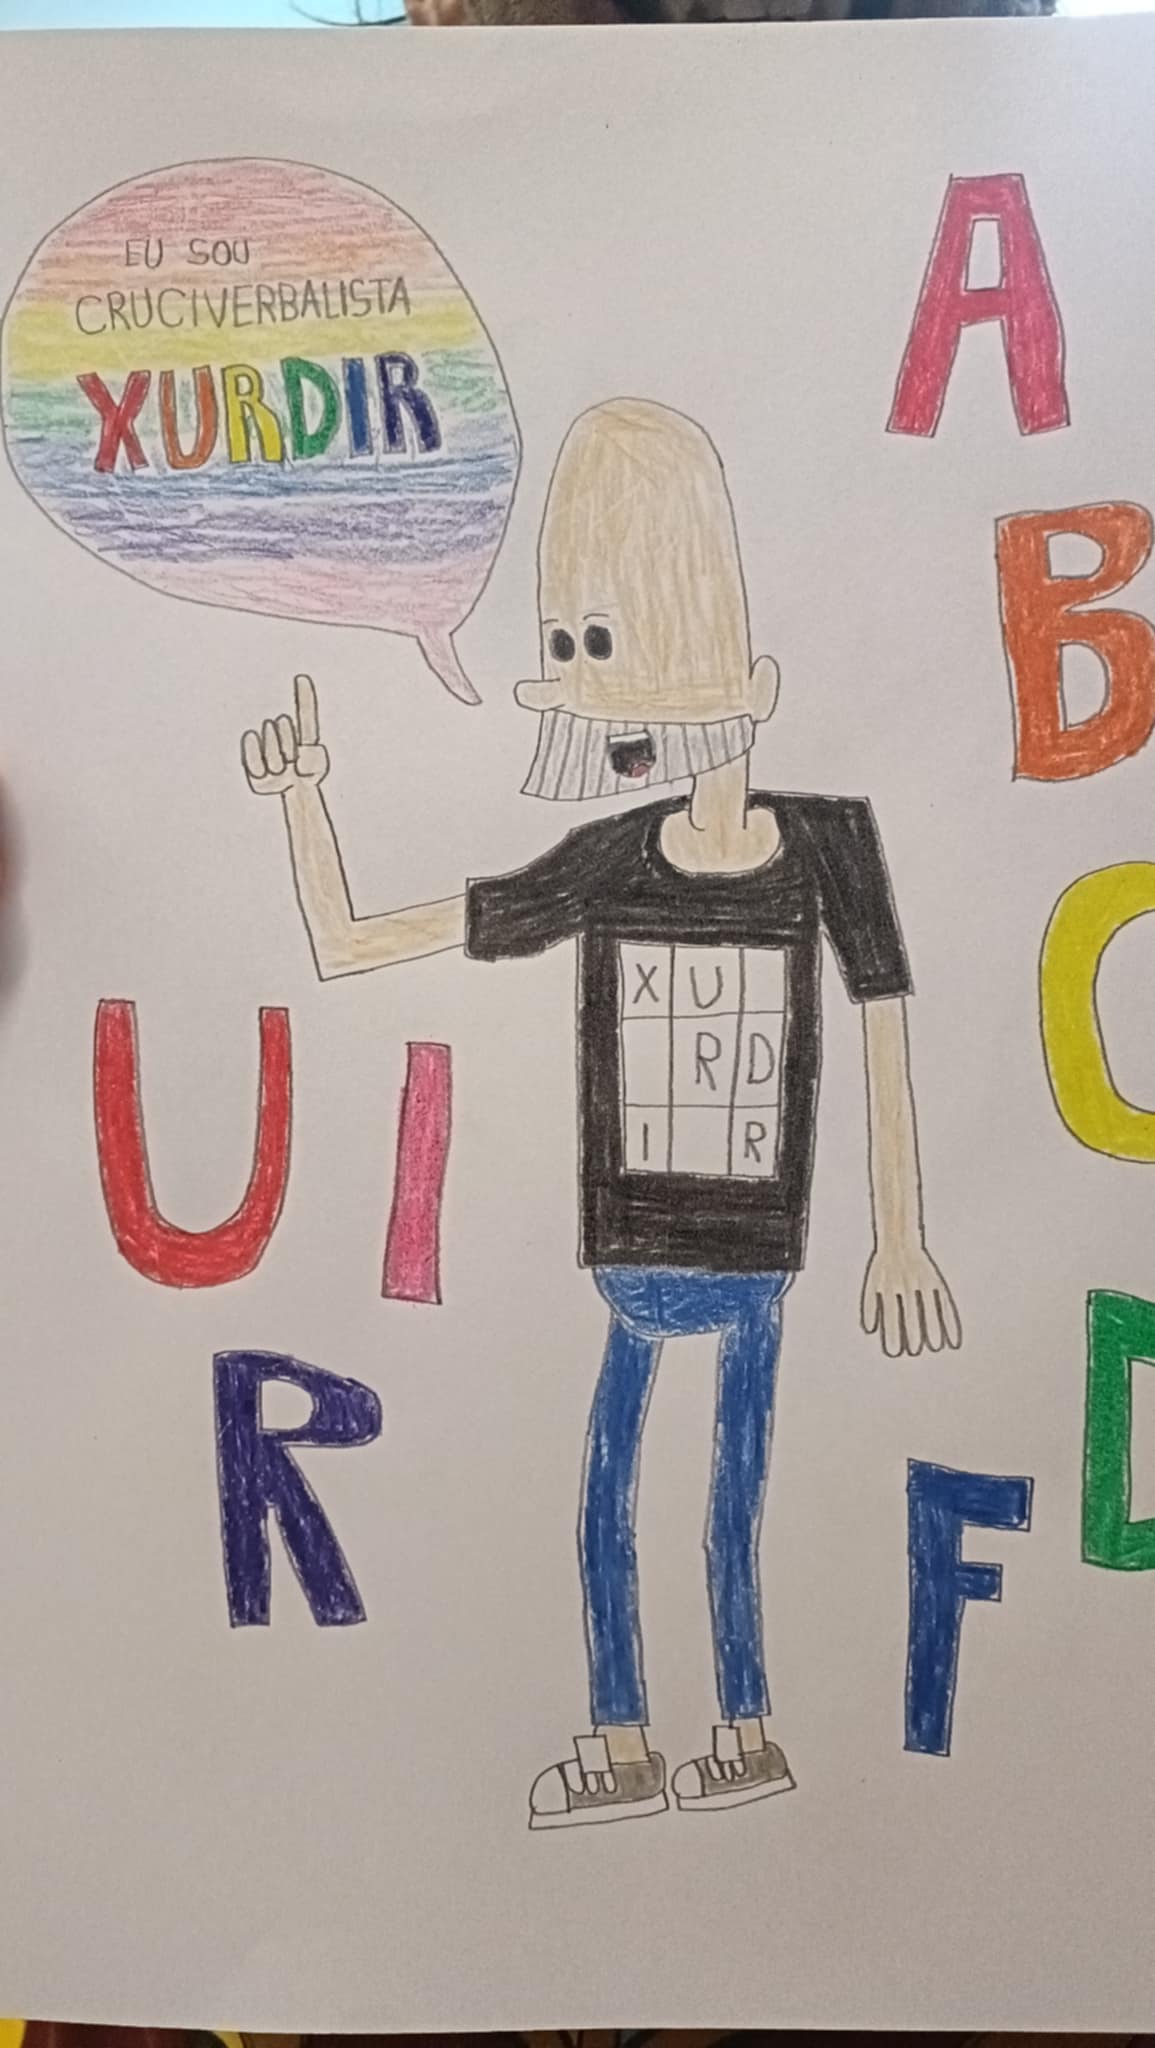 EU SOU
CRUCIVERBALISTA
XURDIR
A
B
C
D
F
X U
R D
I R
U I
R